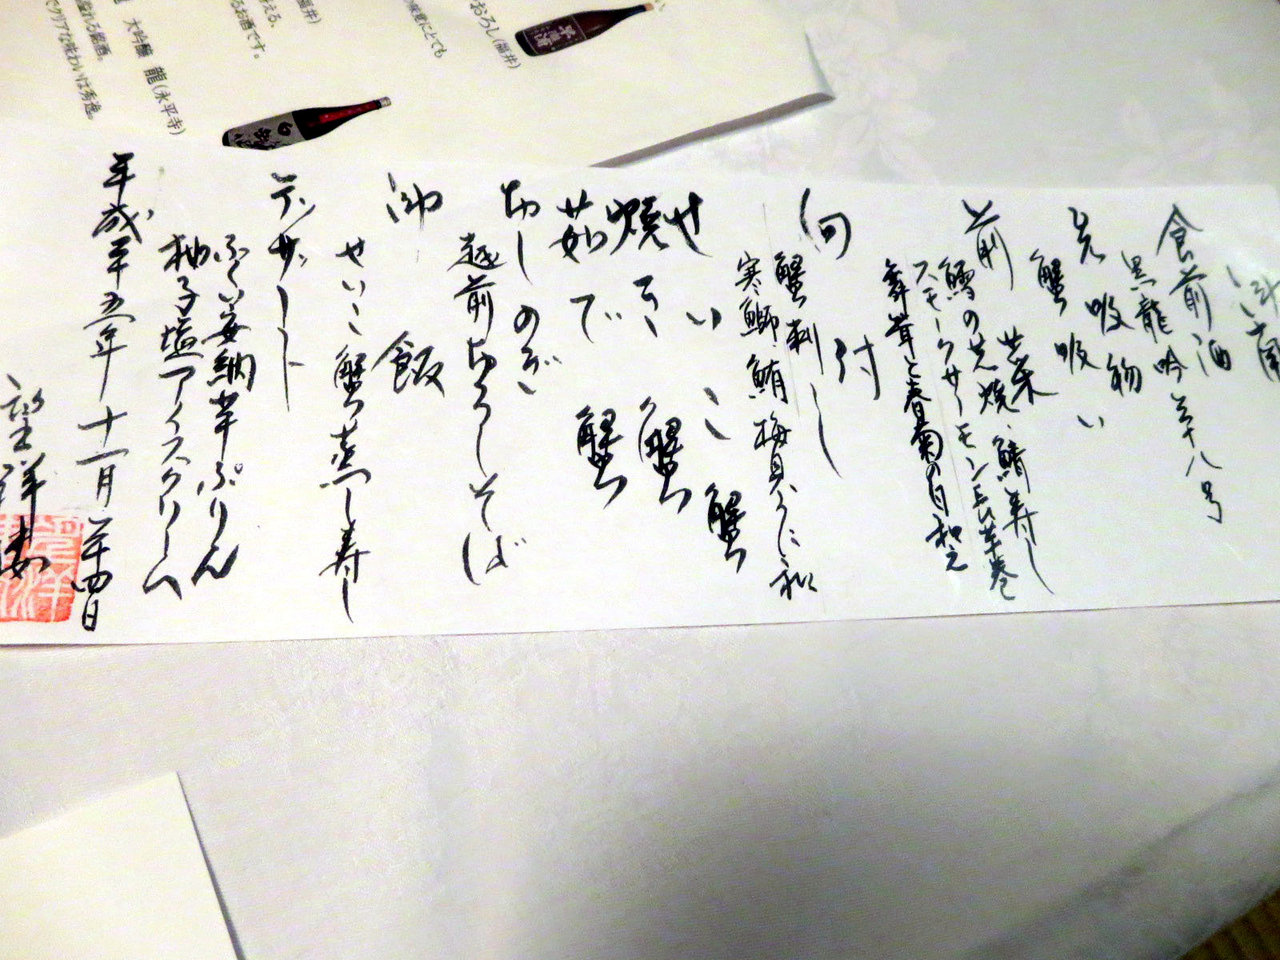 食前酒
黒龍吟半八号
先吸物
蟹吸い
前菜
鱈の芋焼・鯖寿し
スモークサーモン長芋巻
舞茸と春菊の白和え
向付
蟹刺し
寒鰤 鮪 梅貝かに和
せいこ蟹
焼き蟹
茹で蟹
おしのぎ
越前おろしそば
御飯
せいこ蟹蒸し寿し
デザート
ふくい安納芋ぷりん
柚子塩アイスクリーム
平成二十五年十一月二十四日
望洋楼
おろし(福井)
大吟醸 龍(永平寺)
るお酒です。